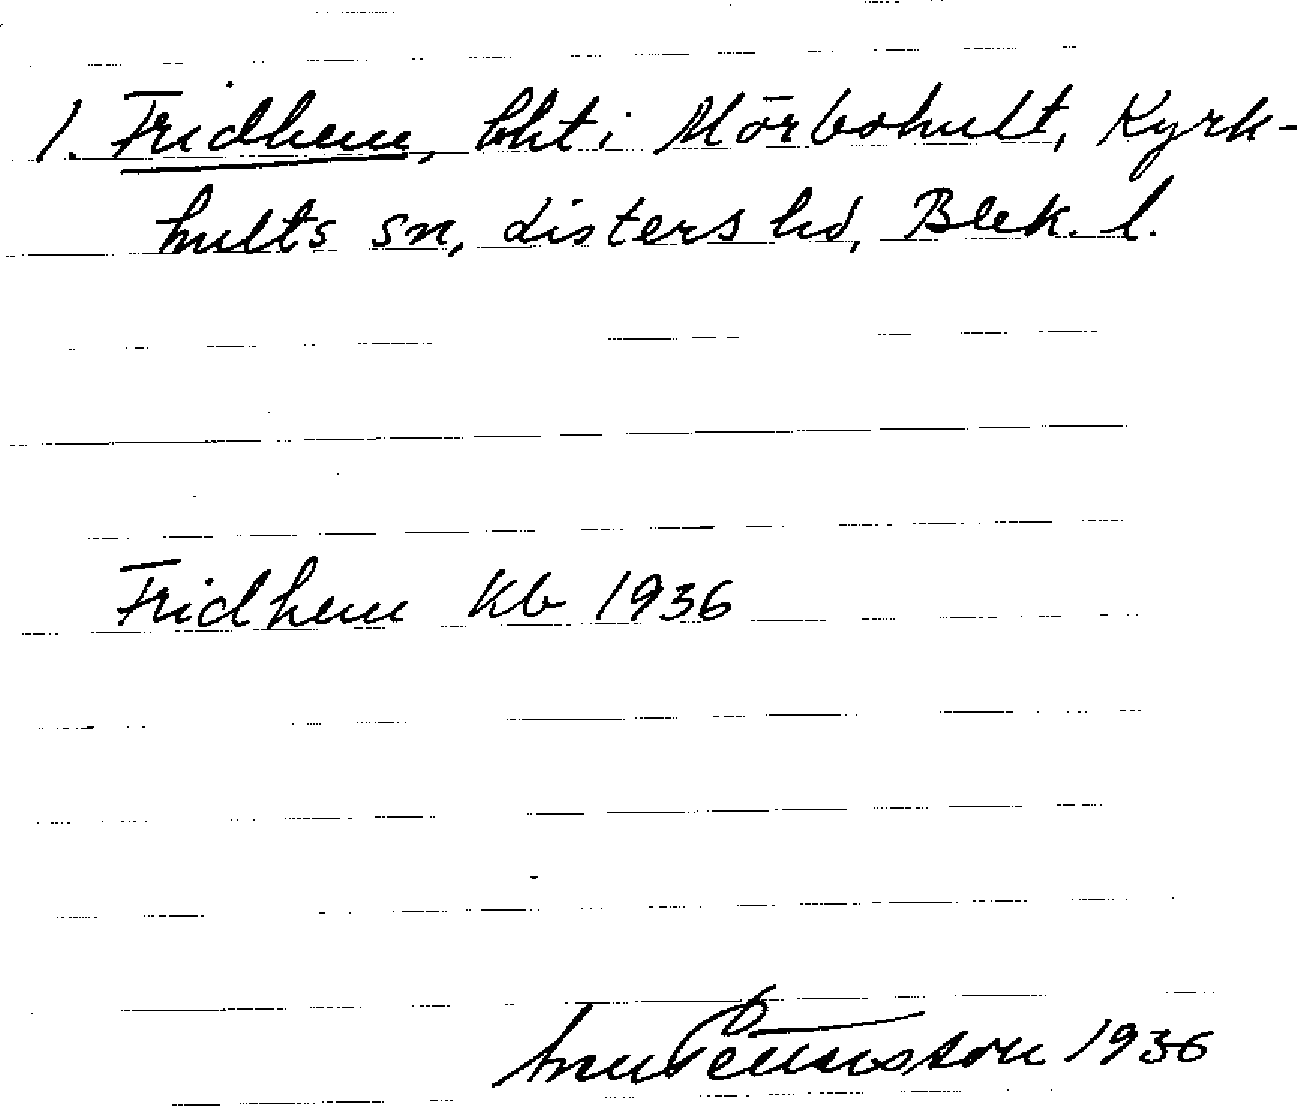 1. Fridhem, bht i Mörbohult, Kyrk-
hults sn, Listers hd, Blek. l.
Fridhem Kb 1936
1936